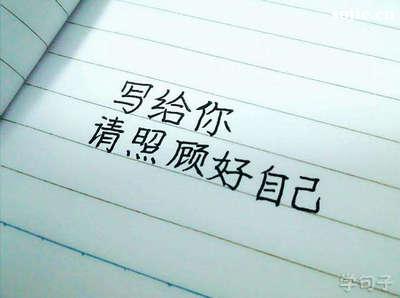 写给你
请照顾好自己
学句子